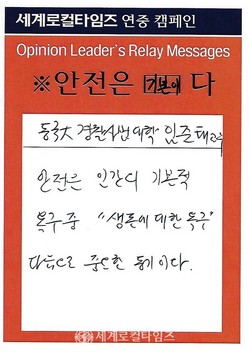 세계로컬타임즈 연중 캠페인
Opinion Leader's Relay Messages
※안전은 기본이 다
동국大 경찰사법대학 임준태 교수
안전은 인간의 기본적
욕구 중 "생존에 대한 욕구"
다음으로 중요한 동기이다.
세계로컬타임즈